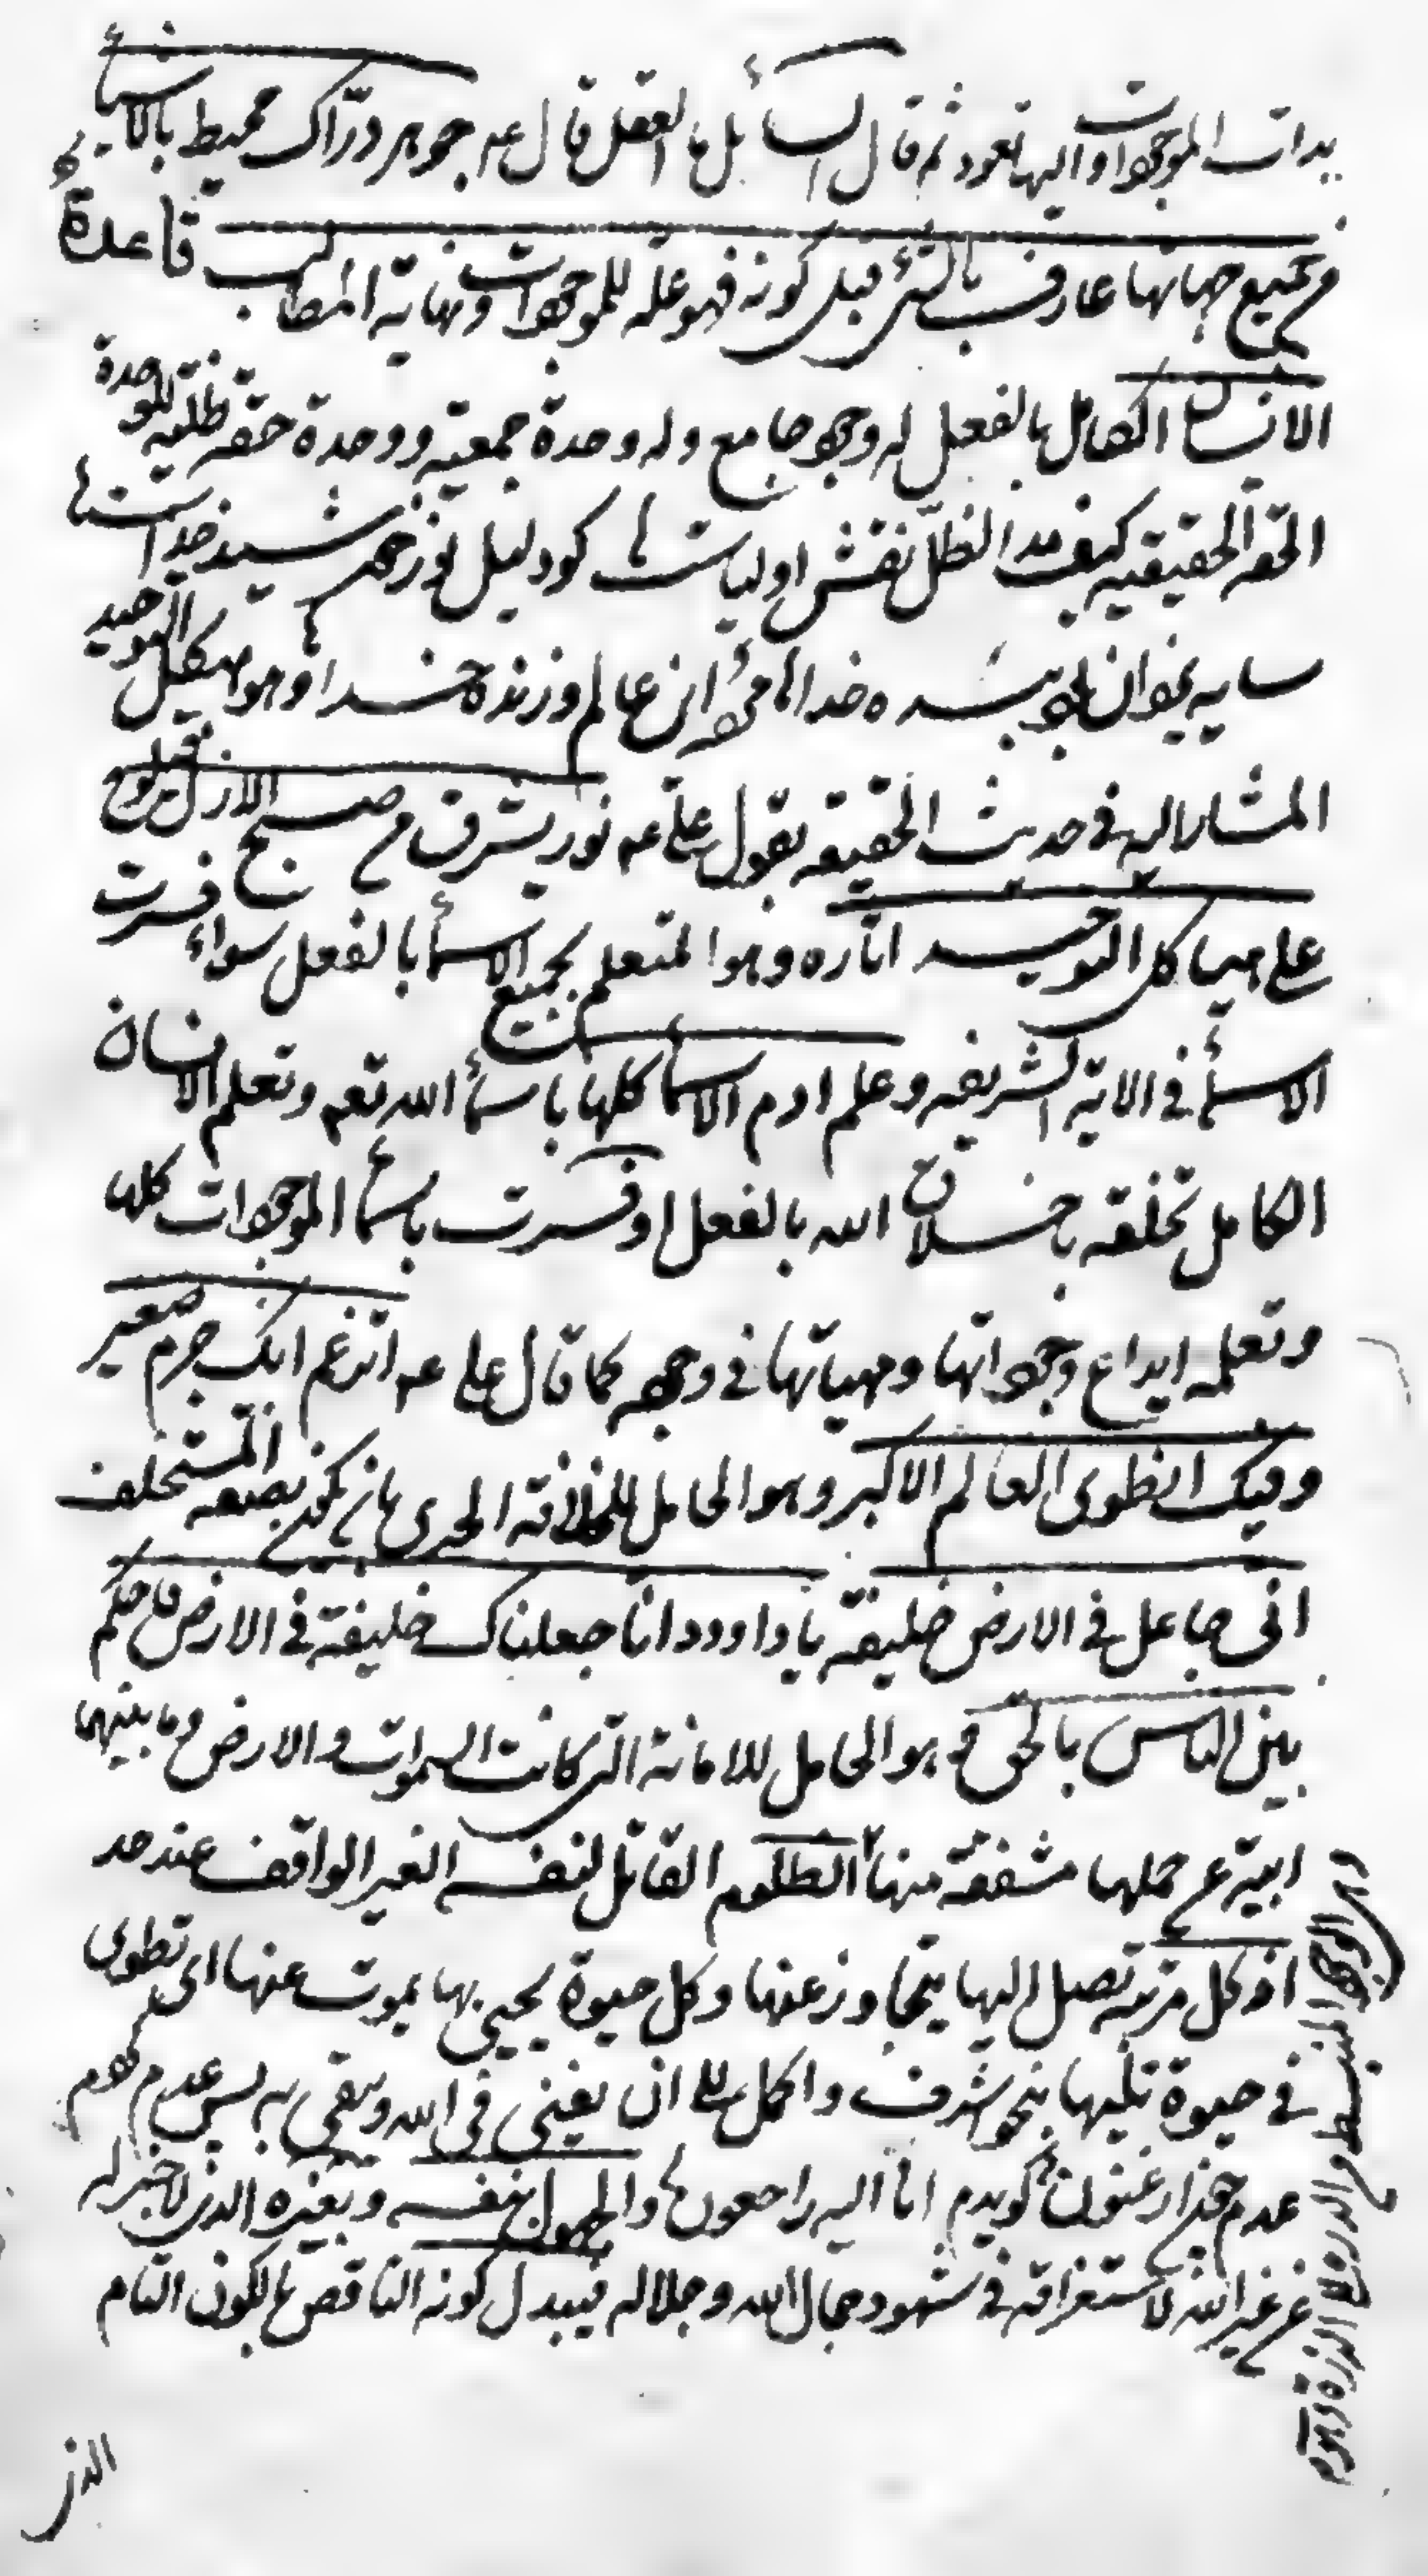 بدات الموجودات واليها تعود ثم قال السائل ما العقل قال عه جوهر درّاك محيط بالاشياء
من جميع جهاتها عارف بالشئ قبل كونه فهو علة للموجودات ونهاية المطالب قاعدة
الانسان الكامل بالفعل له وجود جامع وله وحدة جمعية ووحدة حقه ظلية للوحدة
الحقه الحقيقيه كيف مد الظلّ نقش اولياست كو دليل نور خورشيد خداست
سايه يزدان بود بنده خدا مرده اين عالم وزنده خدا وهو هيكل التوحيد
المشار اليه في حديث الحقيقه بقول علي عه نور يشرق من صبح الازل فيلوح
على هياكل التوحيد اثاره وهو المتعلم بجميع الاسمأ بالفعل سواء فسرت
الاسمأ في الاية الشريفه وعلم ادم الاسمأ كلها باسمأ الله تعه وتعلم الانسان
الكامل تخلقه باخلاق الله بالفعل او فسرت باسمأ الموجودات كلها
وتعلمه ايداع وجوداتها ومهياتها في وجوده كما قال علي عه اتزعم انك جرم صغير
وفيك انطوى العالم الاكبر وهو الحامل للخلافة الحرى بان يكون بصفه المستخلف
انى جاعل في الارض خليفة يا داوود انا جعلناك خليفة في الارض فاحكم
بين الناس بالحق وهو الحامل للامانة التى كانت السموات والارض وما بينهما
ابية عن حملها مشفقة منها الظلوم القاتل لنفسه الغير الواقف عند حد
اذ كل مرتبة تصل اليها يتجاوز عنها وكل حيوة يحيى بها يموت عنها اى تطوى
في حيوة تليها بنحو اشرف واكمل الى ان يفنى في الله ويبقى به پس عدم كردم
عدم چون ارغنون گويدم انا اليه راجعون والجهول بنفسه وبغيره الذى لا خبر له
عن غير الله لاستغراقه في شهود جمال الله وجلاله فيبدل كونه الناقص بالكون التام
الذى